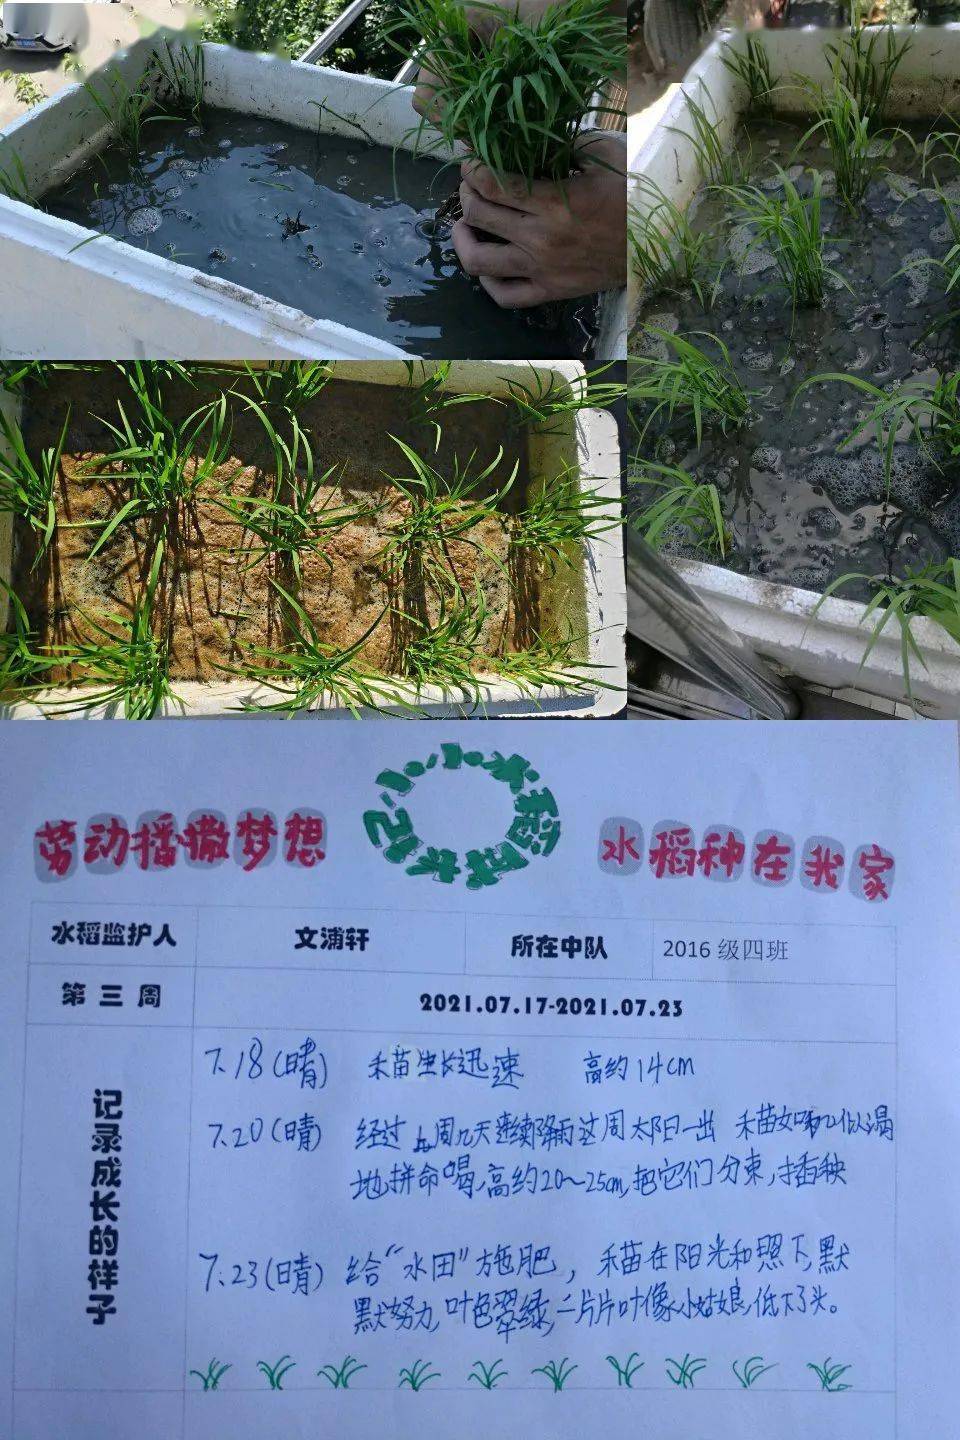 劳动播撒梦想
小小水稻成长记
水稻种在我家
水稻监护人 文浦轩 所在中队 2016 级四班
第 三 周 2021.07.17-2021.07.23
记录成长的样子
7.18(晴) 禾苗生长迅速 高约14cm
7.20(晴) 经过上周几天连续降雨这周太阳一出 禾苗如饥似渴
地拼命喝,高约20~25cm,把它们分束,插秧
7.23(晴) 给“水田”施肥,禾苗在阳光和照下,默
默努力,叶色翠绿,一片片叶像小姑娘,低下了头。